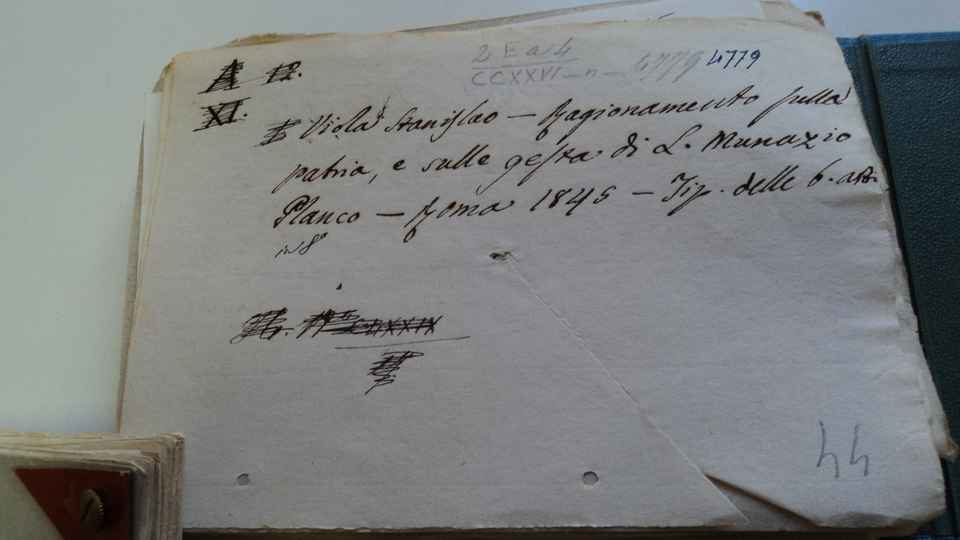 A 12.
2 E a 4
CCXXVI - n - 4779 4779
XI.
Viola Stanislao — Ragionamento sulla
patria, e sulle gesta di L. Munazio
Planco — Roma 1845 — Tip. delle b. arti
in 8°
CLXXIX
44